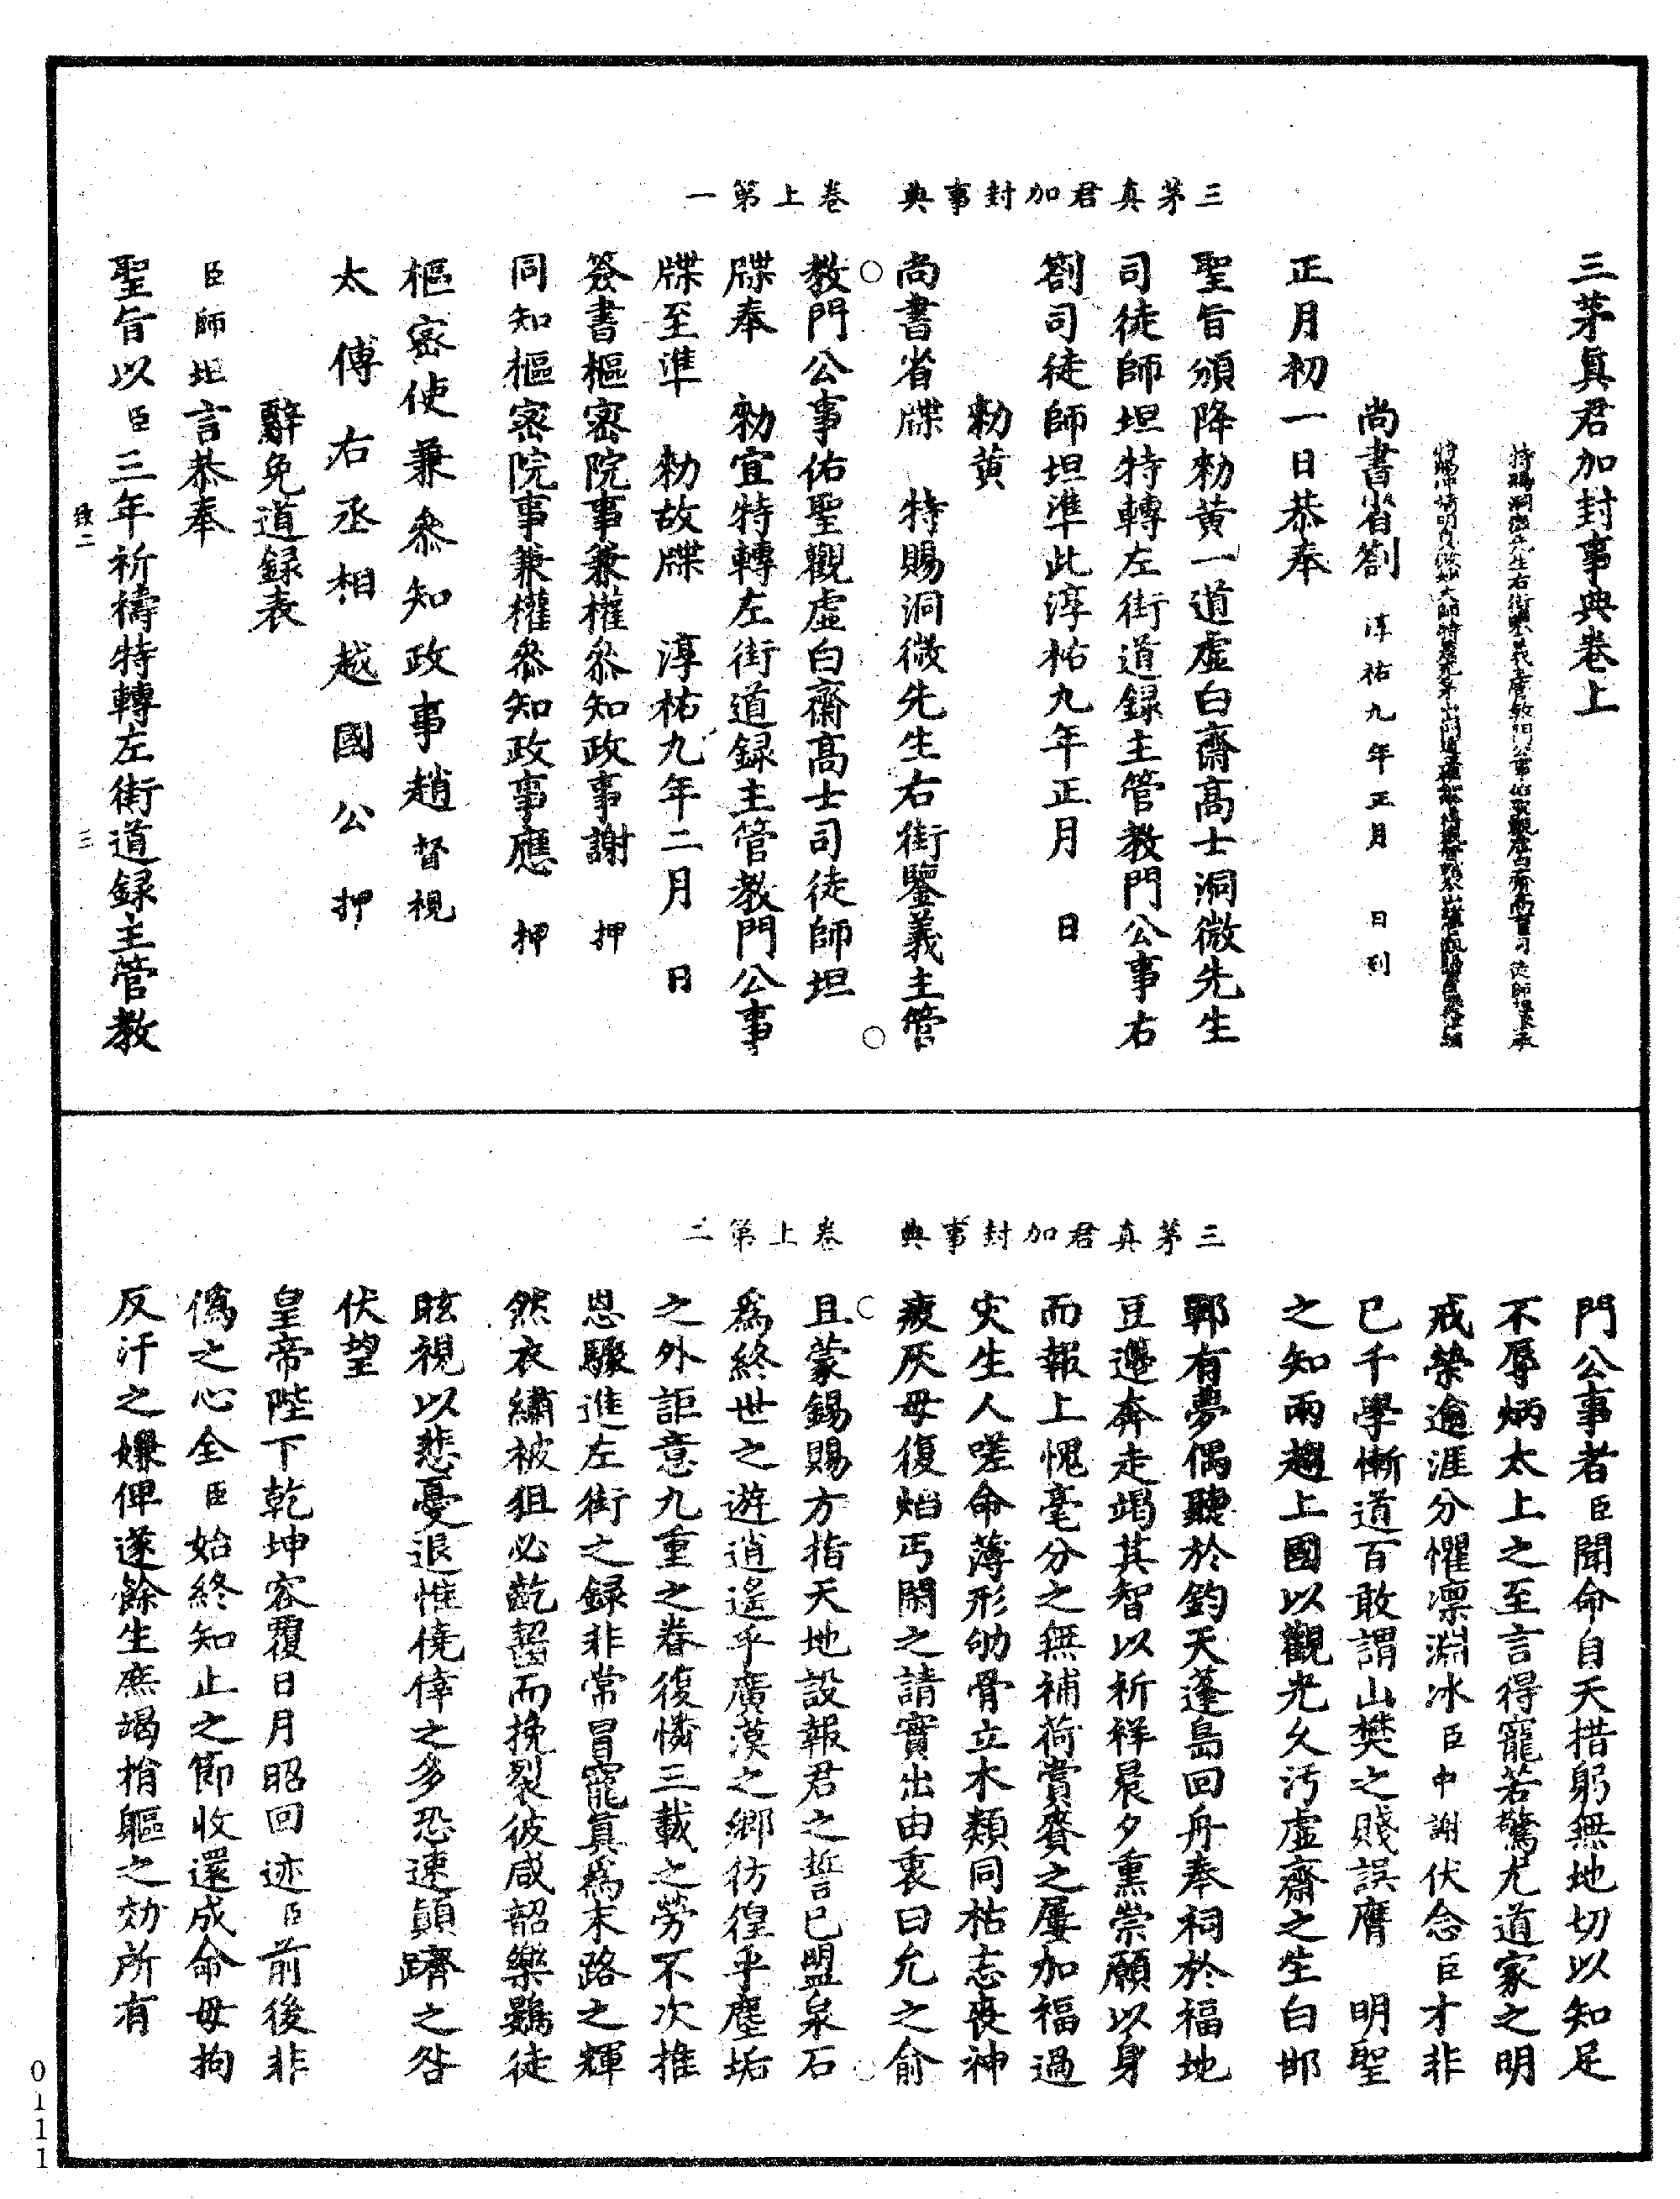 三茅真君加封事典卷上
特賜洞微先生右街鑒義主管教門公事佑聖觀虛白齋高士司徒師坦
尚書省劄 淳祐九年正月 日到
正月初一日恭奉
聖旨頒降勑黃一道虛白齋高士洞微先生
司徒師坦特轉左街道録主管教門公事右
劄司徒師坦準此淳祐九年正月 日
勑黃
尚書省牒 特賜洞微先生右街鑒義主管
教門公事佑聖觀虛白齋高士司徒師坦
牒奉 勑宜特轉左街道録主管教門公事
牒至準 勑故牒 淳祐九年二月 日
簽書樞密院事兼權叅知政事謝 押
同知樞密院事兼權叅知政事應 押
樞密使兼叅知政事趙督視
太傅右丞相越國公 押
辭免道録表
臣師坦言恭奉
聖旨以臣三年祈禱特轉左街道録主管教
三茅真君加封事典 卷上第一
三
門公事者臣聞命自天措躬無地切以知足
不辱炳太上之至言得寵若驚尤道家之明
戒榮逾涯分懼凛淵冰臣中謝伏念臣才非
已千學慚道百敢謂山樊之賤誤膺 明聖
之知兩趨上國以觀光久污虛齋之生白邯
鄲有夢偶聽於鈞天蓬島回舟奉祠於福地
豆籩奔走竭其智以祈祥晨夕熏崇願以身
而報上愧毫分之無補荷賞賚之屢加福過
灾生人嗟命薄形劬骨立木類同枯志喪神
疲灰毋復焰丐閑之請實出由衷曰允之俞
且蒙錫賜方指天地設報君之誓已盟泉石
爲終世之遊逍遙乎廣漠之鄉彷徨乎塵垢
之外詎意九重之眷復憐三載之勞不次推
恩驟進左街之録非常冒寵真爲末路之輝
然衣繡被狙必齕齧而挽裂彼咸韶樂鷃徒
眩視以悲憂退惟僥倖之多恐速顛躋之咎
伏望
皇帝陛下乾坤容覆日月昭回迹臣前後非
僞之心全臣始終知止之節收還成命毋拘
反汗之嫌俾遂餘生庶竭捐軀之効所有
三茅真君加封事典 卷上第二
0111